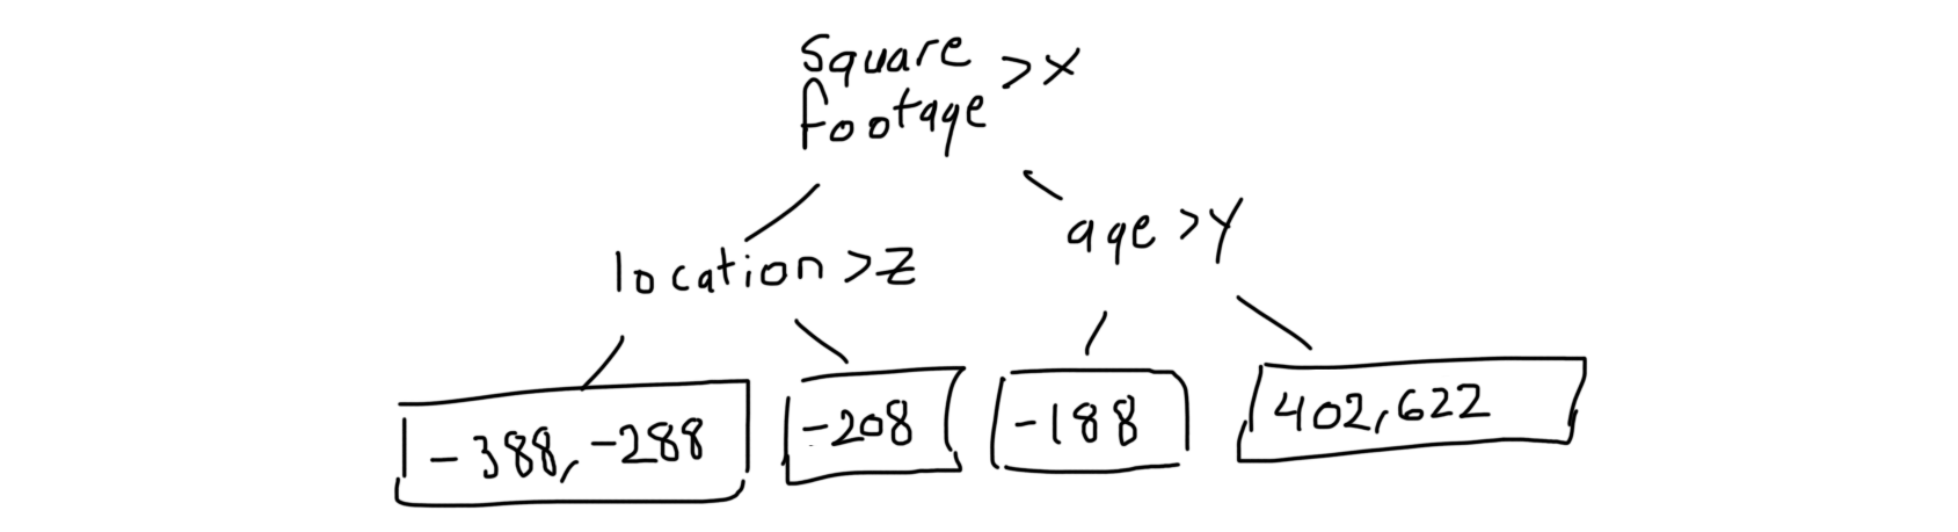 Square
footage >X
location >Z
age >Y
-388, -288
-208
-188
402,622